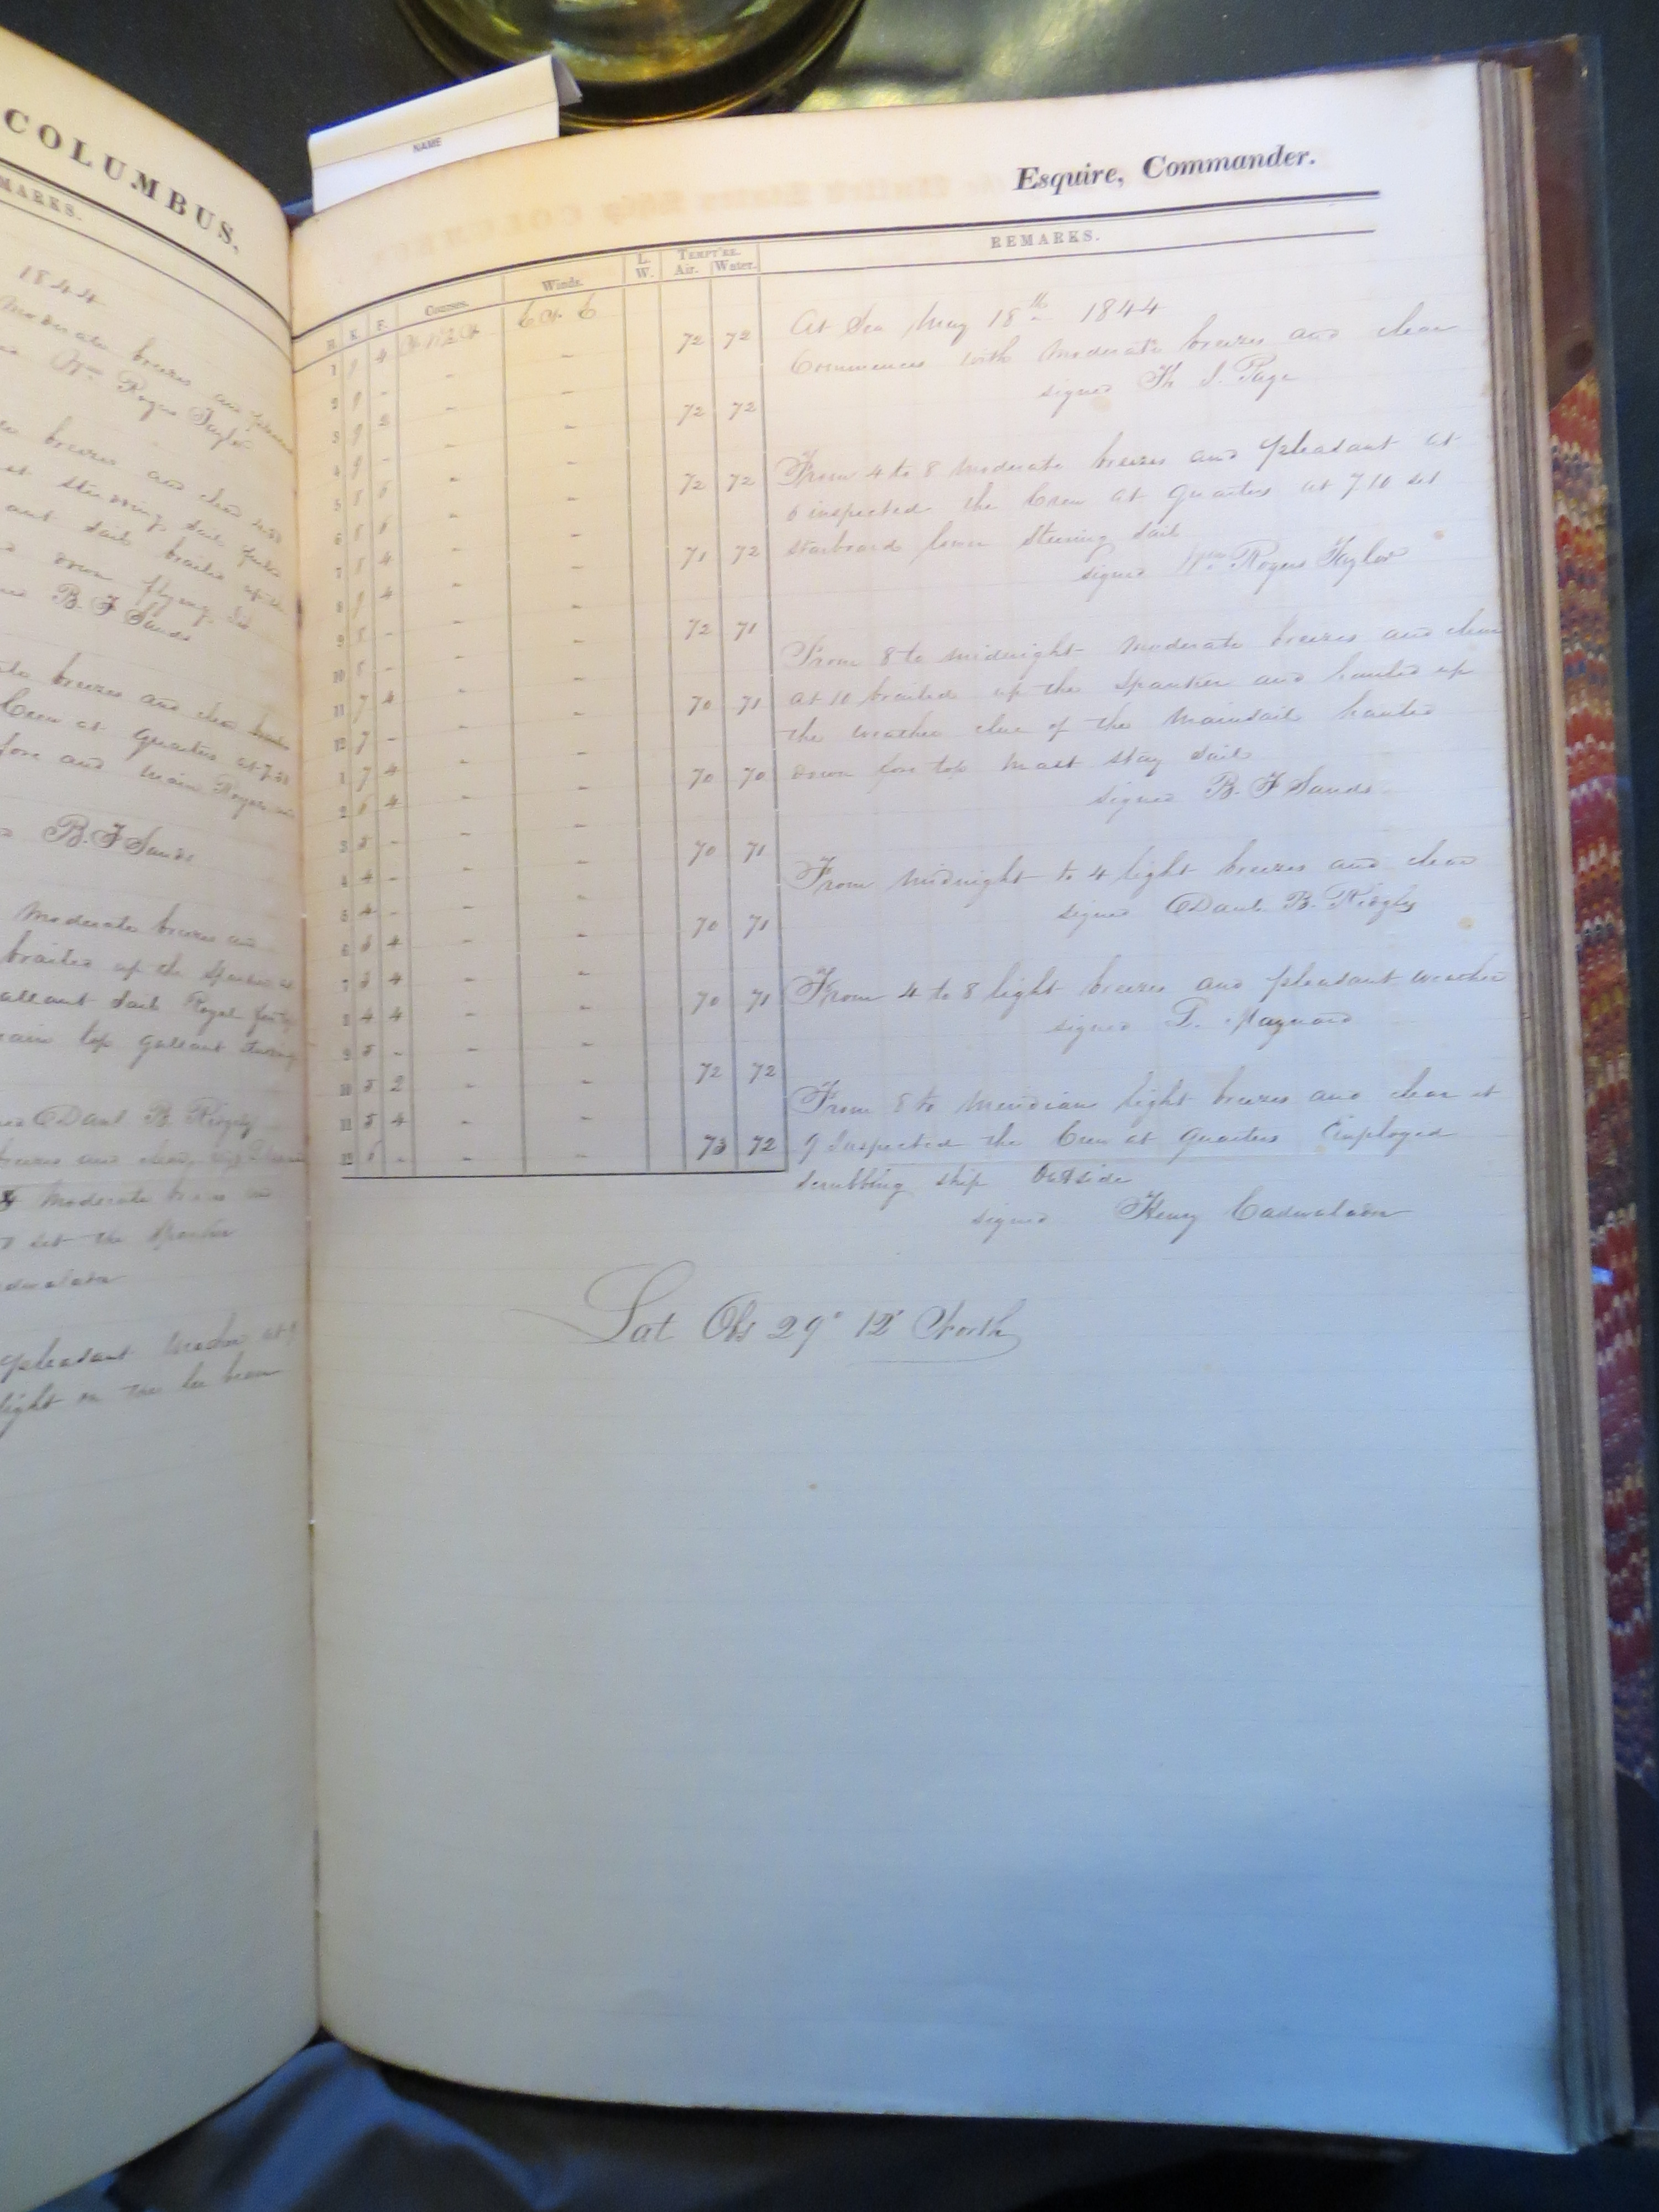 COLUMBUS.
REMARKS.
1844
Moderate breezes and pleasant
Wm Rogers Taylor
breezes and clear 4.30
set steering sail
gallant sail brailed up the
down flying Jib
B. F Sands
breezes and clear
Crew at Quarters at 7.30
fore and main Royals
B. F Sands
Moderate breezes and
brailed up the Spanker at
gallant sail Royal
main top gallant
Danl B. Ridgely
breezes and clear
Moderate breezes and
set the Spanker
pleasant weather at 9
light on the lee beam
NAME
Esquire, Commander.
H. K. F. Courses. Winds. L. W. TEMPT'RE. Air. Water. REMARKS.
At Sea May 18th 1844
Commences with moderate breezes and clear
signed Th J. Page
From 4 to 8 moderate breezes and pleasant at
6 inspected the Crew at Quarters at 7.10 set
starboard lower steering sail
signed Wm Rogers Taylor
From 8 to midnight moderate breezes and clear
at 10 brailed up the Spanker and hauled up
the weather clue of the Mainsail hauled
down fore top Mast stay sail
signed B. F Sands
From midnight to 4 light breezes and clear
signed Danl B. Ridgely
From 4 to 8 light breezes and pleasant weather
signed L. Maynard
From 8 to Meridian light breezes and clear at
9 Inspected the Crew at Quarters Employed
scrubbing ship outside
signed Henry Cadwalader
1 9 4
2 9 -
3 9 2
4 9 -
5 8 6
6 8 6
7 8 4
8 9 4
9 8 -
10 8 -
11 7 4
12 7 -
1 7 4
2 6 4
3 5 -
4 4 -
5 4 -
6 3 4
7 3 4
8 4 4
9 5 -
10 5 2
11 5 4
12 6 -
72 72
72 72
72 72
71 72
72 71
70 71
70 70
70 71
70 71
70 71
72 72
73 72
Lat Obs 29° 12' North